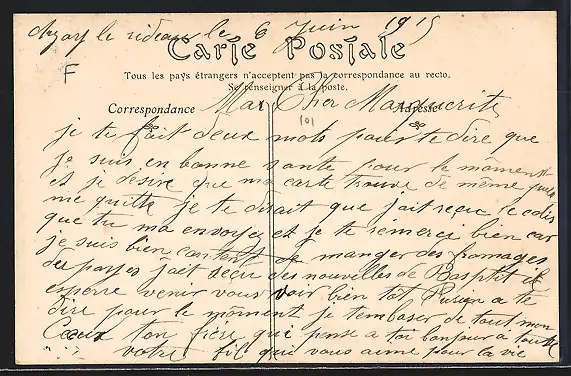 Azay le rideau le 6 Juin 1915
Carte Postale
F
Tous les pays étrangers n'acceptent pas la correspondance au recto.
Se renseigner à la poste.
Correspondance
Adresse
Ma Cher Marguerite
101
je te fait deux mots pour te dire que
je suis en bonne sante pour le môment
et je desire que ma carte trouve de même
me quitte je te dirait que j'ait reçu le colis
que tu ma envoyer et je te remerci bien car
je suis bien content de manger des fromages
des payses j'ait reçu des nouvelles de Baptit il
esperre venir vous voir bien tôt a te
dire pour le môment je t'embasser de tout mon
Cœur ton frère qui pense a toi bonjour a toute
votre fil qui vous aime pour la vie